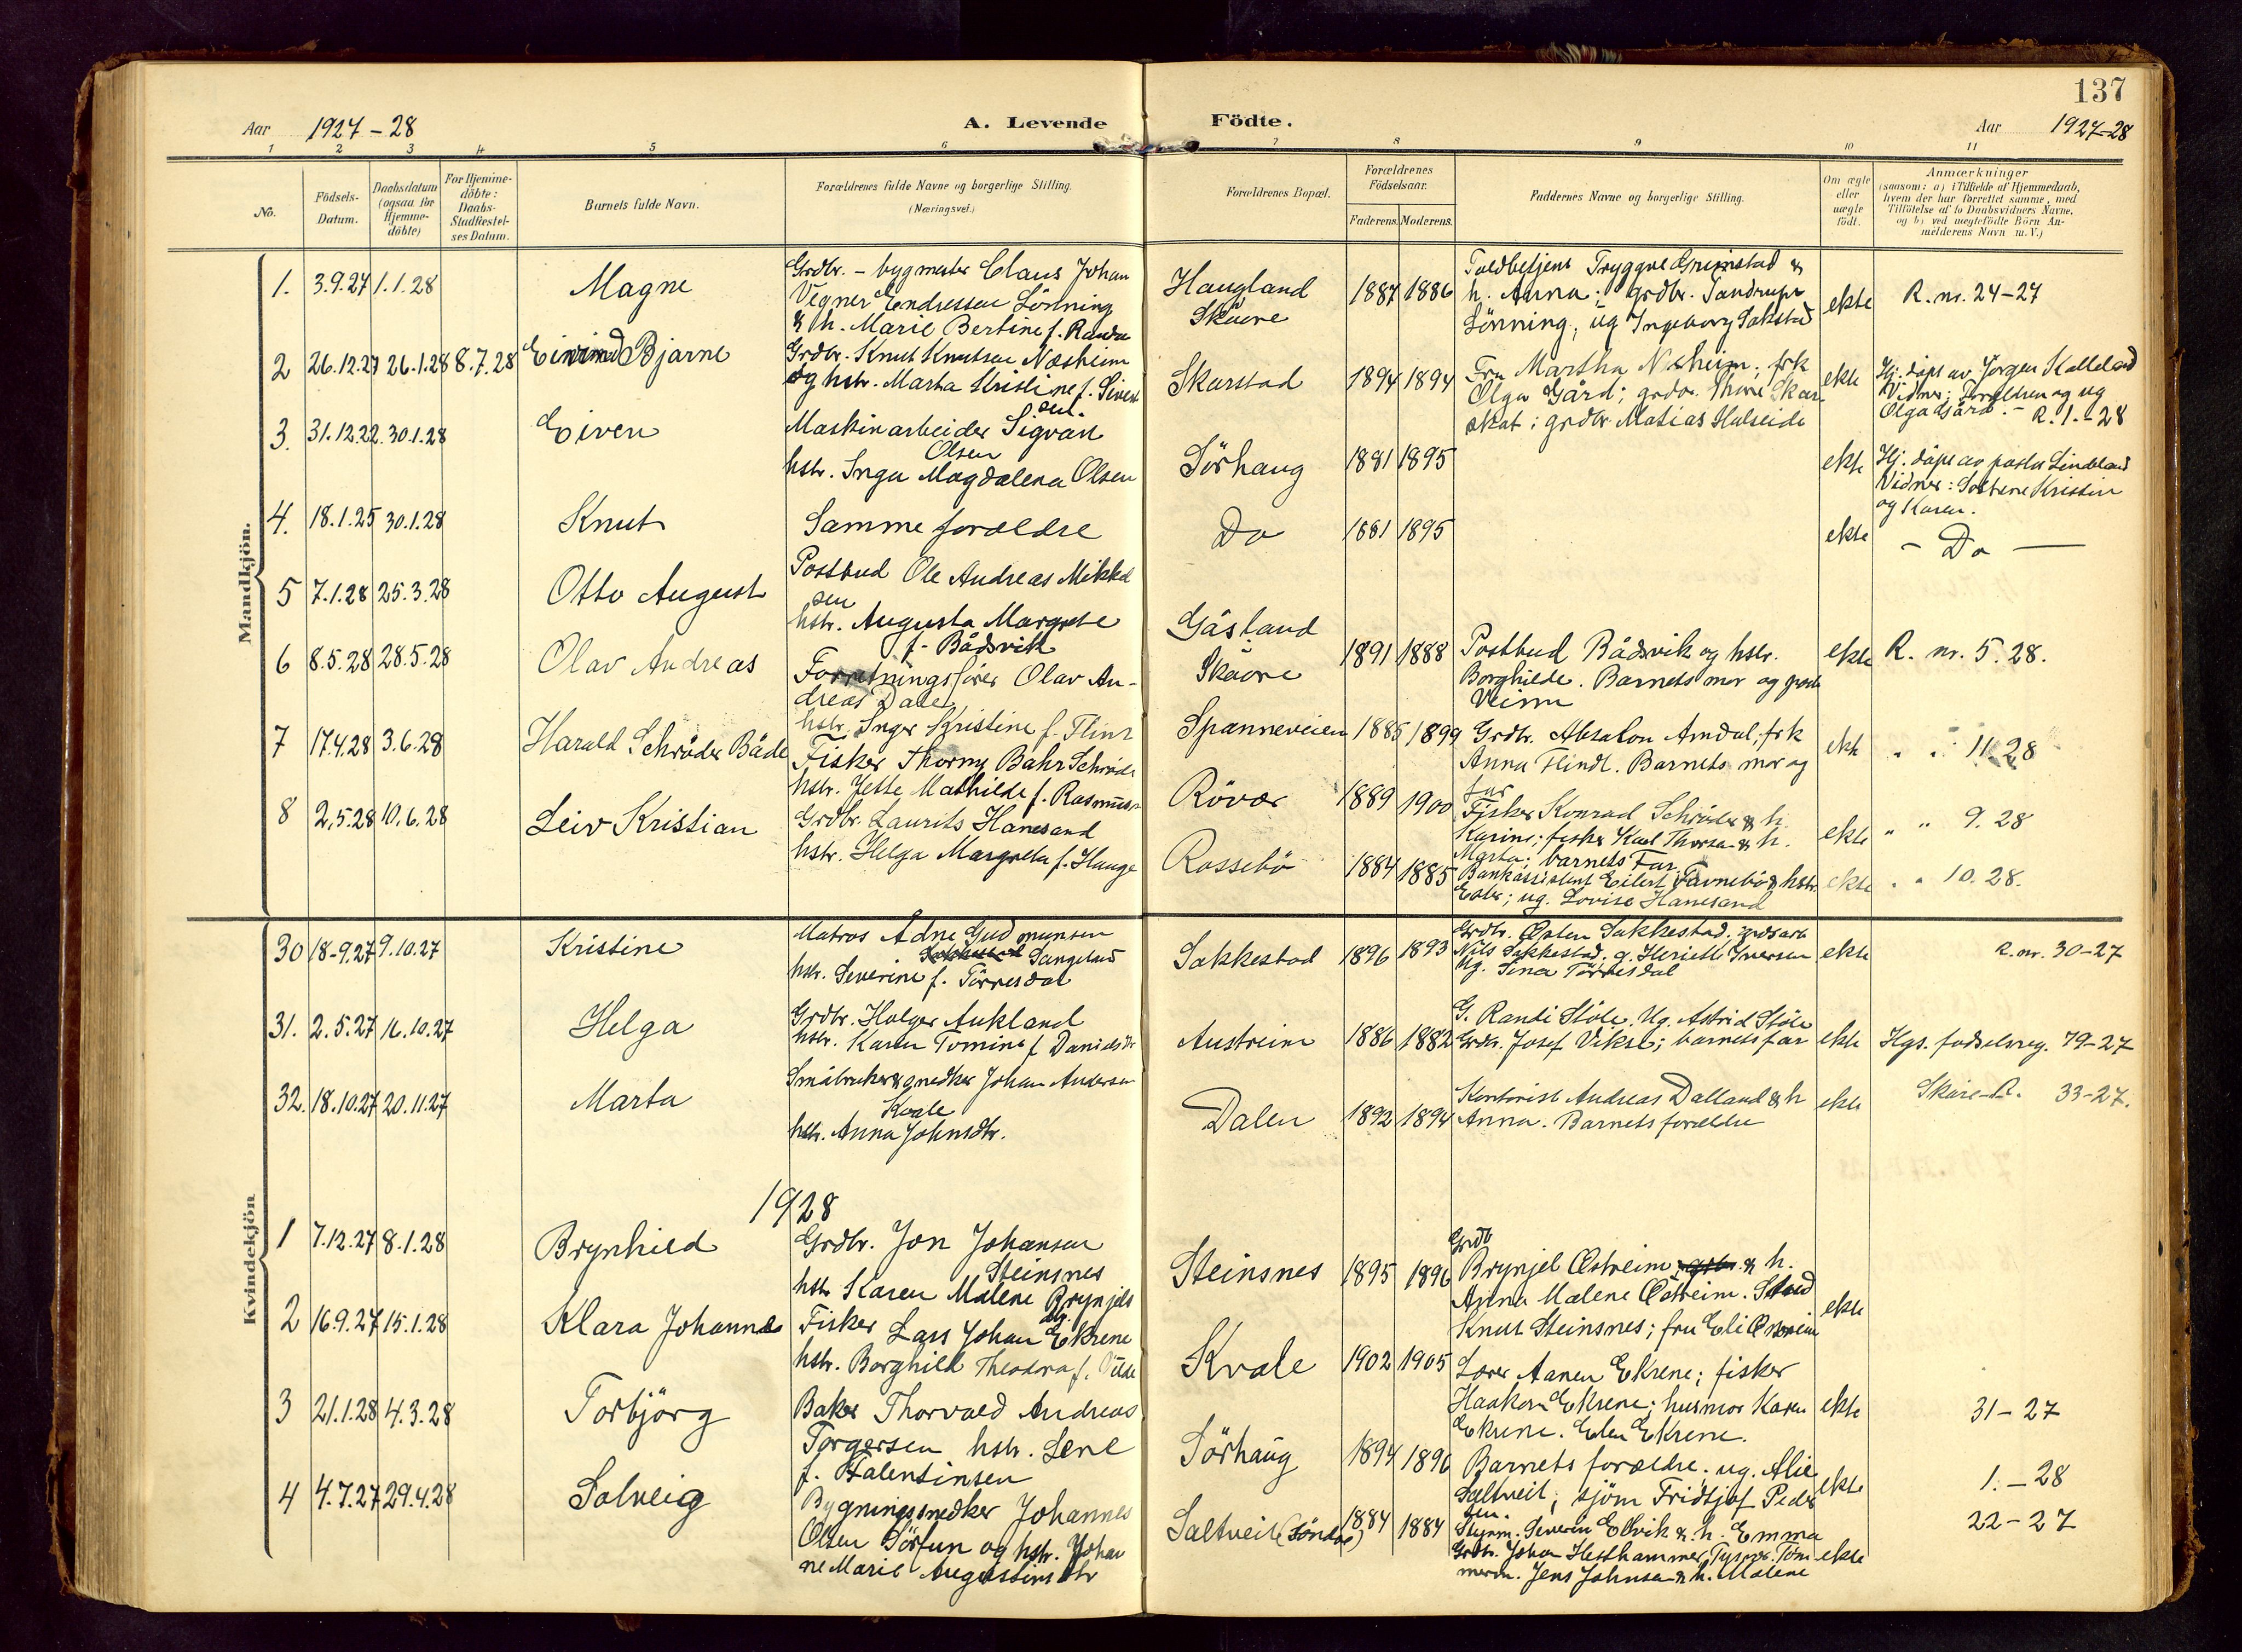 137
Aar 1927-28
A. Levende Födte.
Aar 1927-28
1 2 3 4 5 6 7 8 9 10 11
No.
Födsels-Datum.
Daabsdatum (ogsaa for Hjemme-döbte)
For Hjemme-döbte: Daabs-Stadfæstel-ses Datum.
Barnets fulde Navn.
Forældrenes fulde Navne og borgerlige Stilling.
(Næringsvei.)
Forældrenes Bopæl.
Forældrenes Födselsaar.
Faderens. Moderens.
Faddernes Navne og borgerlige Stilling.
Om ægte eller uægte födt.
Anmærkninger
(saasom: a) i Tilfælde af Hjemmedaab,
hvem der har forrettet samme, med
Tilföielse af to Daabsvidners Navne,
og b) ved uægtefödte Börn An-
melderens Navn m. V.)
Mandkjön.
1. 3.9.27 1.1.28 Magne
Grdbr. - bygmester Claus Johan
Vegner Endressen Lönning
& h. Marie Bertine f.
Haugland
Skåre
1887 1886
Toldbetjent Tryggve Grimstad &
h. Anna; grdbr.
Lönning; ug Ingeborg Sakstad
ekte
R. nr. 24-27
2 26.12.27 26.1.28 8.7.28 Bjarne
Grdbr. Knut Knutsen Næsheim
og hstr. Marta Kristine f.
Skarstad
1894 1894
Fru Martha Næsheim; frk
Olga Gård; grdbr.
grdbr. Matias Halseide
ekte
Hj. döpt av Jörgen Kalleland
Vidner: Foreldren og ug
Olga Gård. - R. 1.-28
3. 31.12.22. 30.1.28 Eiven
Maskinarbeider Sigvart
Olsen
hstr. Inga Magdalena Olsen
Sörhaug
1881 1895
ekte
Hj. döpt av pastor Lindeland
Vidner: Söstrene Kristin
og Karen.
4. 18.1.25 30.1.28 Knut
Samme forældre
Do
1881 1895
ekte
- Do -
5 7.1.28 25.3.28 Otto August
Postbud Ole Andreas Mikkel
sen
hstr. Augusta Margrete
f. Bådsvik
Gåsland
Skåre
1891 1888
Postbud Bådsvik og hstr.
Borghilde. Barnets mor og
ekte
R. nr. 5. 28.
6 8.5.28 28.5.28 Olav Andreas
Forretningsförer Olav An-
dreas Dale
hstr. Inger Kristine f. Flint
Spanneveien
1885 1899
Grdbr. Absalon Amdal; frk
Anna Flindt. Barnets mor og
far
ekte
" " 11. 28
7 17.4.28 3.6.28 Harald Schröder
Fisker Thormy Bahr Schröder
hstr. Jette Mathilde f. Rasmussen
Rövær
1889 1900
Fisker Konrad Schröder & h.
Karine; fisker Karl Thorsen & h.
Marta; barnets Far.
ekte
" " 9. 28
8 2.5.28 10.6.28 Leiv Kristian
Grdbr. Laurits Hanesand
hstr. Helga Margreta f. Hauge
Rossebö
1884 1885
Bankassistent Eilert & hstr.
ug. Lovise Hanesand
ekte
" " 10. 28.
Kvindekjön
30 18-9.27 9.10.27 Kristine
Matros Adne Gudmunsen
Sangeland
hstr. Severine f. Törresdal
Sakkestad
1896 1893
Grdbr. Østen Sakkestad. grdsarb
Nils Sakkestad. g. Henriette Iversen
Ug. Sina Törresdal
ekte
R. nr. 30-27
31. 2.5.27 16.10.27 Helga
Grdbr. Holger Aukland
hstr. Karen Tomine f. Daniels dtr
Austreim
1886 1882
G. Randi Stöle. Ug. Astrid Stöle
Grdbr. Josef Vikse; barnets far
ekte
Hgs. fødselsreg. 79-27
32. 18.10.27 20.11.27 Marta
Småbruker & snedker Johan Andersen
Kvale
hstr. Anna Johnsdtr.
Dalen
1892 1894
Kontorist Andreas Dalland & h
Anna. Barnets forældre
ekte
Skåre R. 33-27.
1928
1 7.12.27 8.1.28 Brynhild
Grdbr. Jon Johansen
Steinsnes
hstr Karen Malene Brynjels
dtr.
Steinsnes
1895 1896
Grdb
Brynjel Østreim & h.
Anna Malene Østreim. Stud
Knut Steinsnes; fru Eli Østreim
ekte
2 16.9.27 15.1.28 Klara Johanne
Fisker Lars Johan Ekrene
hstr. Borghild Theodora f.
Kvale
1902 1905
Lærer Aanen Ekrene; fisker
Haakon Ekrene; husmor Karen
Ekrene. Elen Ekrene.
ekte
31-27
3 21.1.28 4.3.28 Torbjörg
Baker Thorvald Andreas
Torgersen hstr. Lene
f. Falentinsen
Sörhaug
1894 1896
Barnets forældre. ug. Alie
Saltveit; sjöm Fridtjof Peder
sen.
ekte
1.-28
4 4.7.27 29.4.28 Solveig
Bygningssnedker Johannes
Olsen Törfun og hstr. Johan
ne Marie Augustins dtr
Saltveit (Söndre)
1884 1884
Styrm. Severin Elvik & h. Emma
Grdbr. Johan Hesthammer, Tysvær. Töm
merm. Jens Johnsen & h. Malene
ekte
22-27